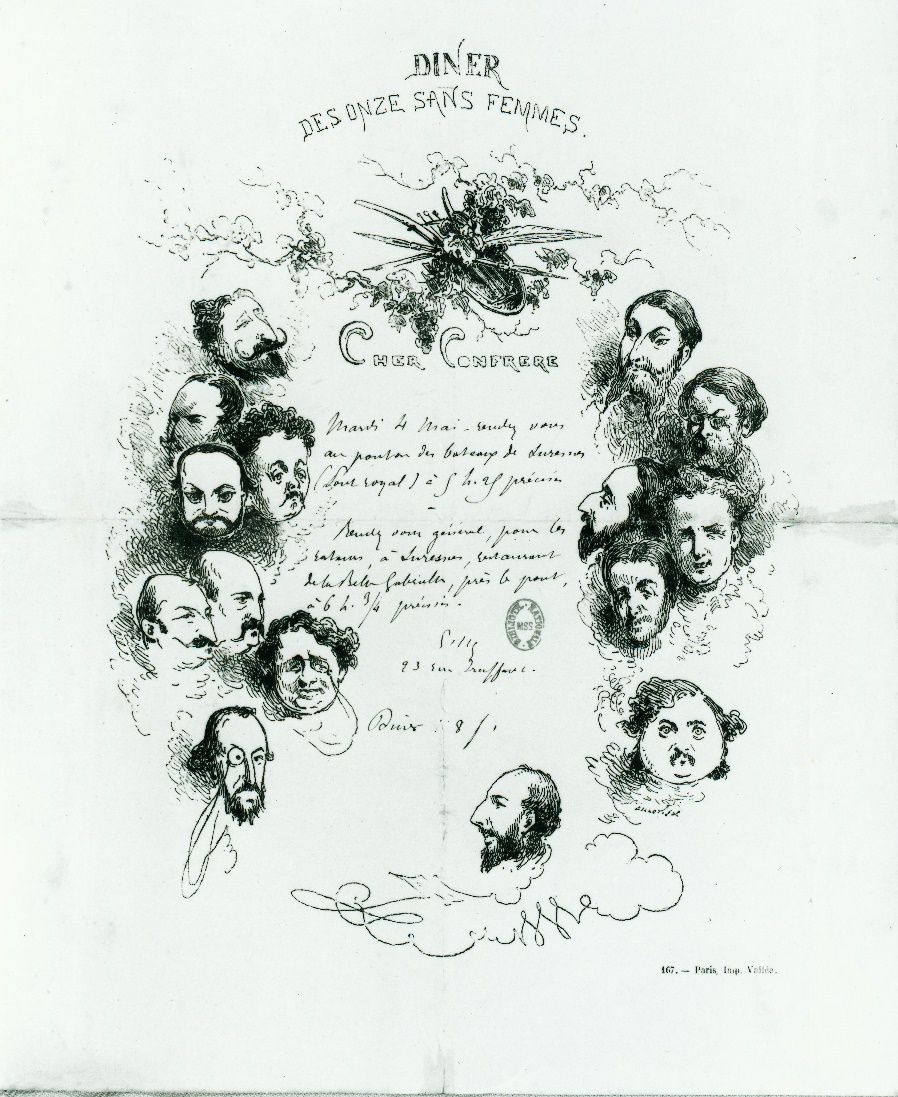 DINER
DES ONZE SANS FEMMES.
CHER CONFRERE
Mardi 4 Mai - rendez vous
au ponton des bateaux de Suresnes
(Pont royal) à 5 h. 25 précises
Rendez vous général, pour les
à Suresnes, restaurant
de la Belle Gabrielle, près le pont,
à 6 h. 3/4 précises.
23 rue Truffaut.
Diner : 8 f.
BIBLIOTH. NATIONALE
MSS
167. — Paris, Imp. Vallée.